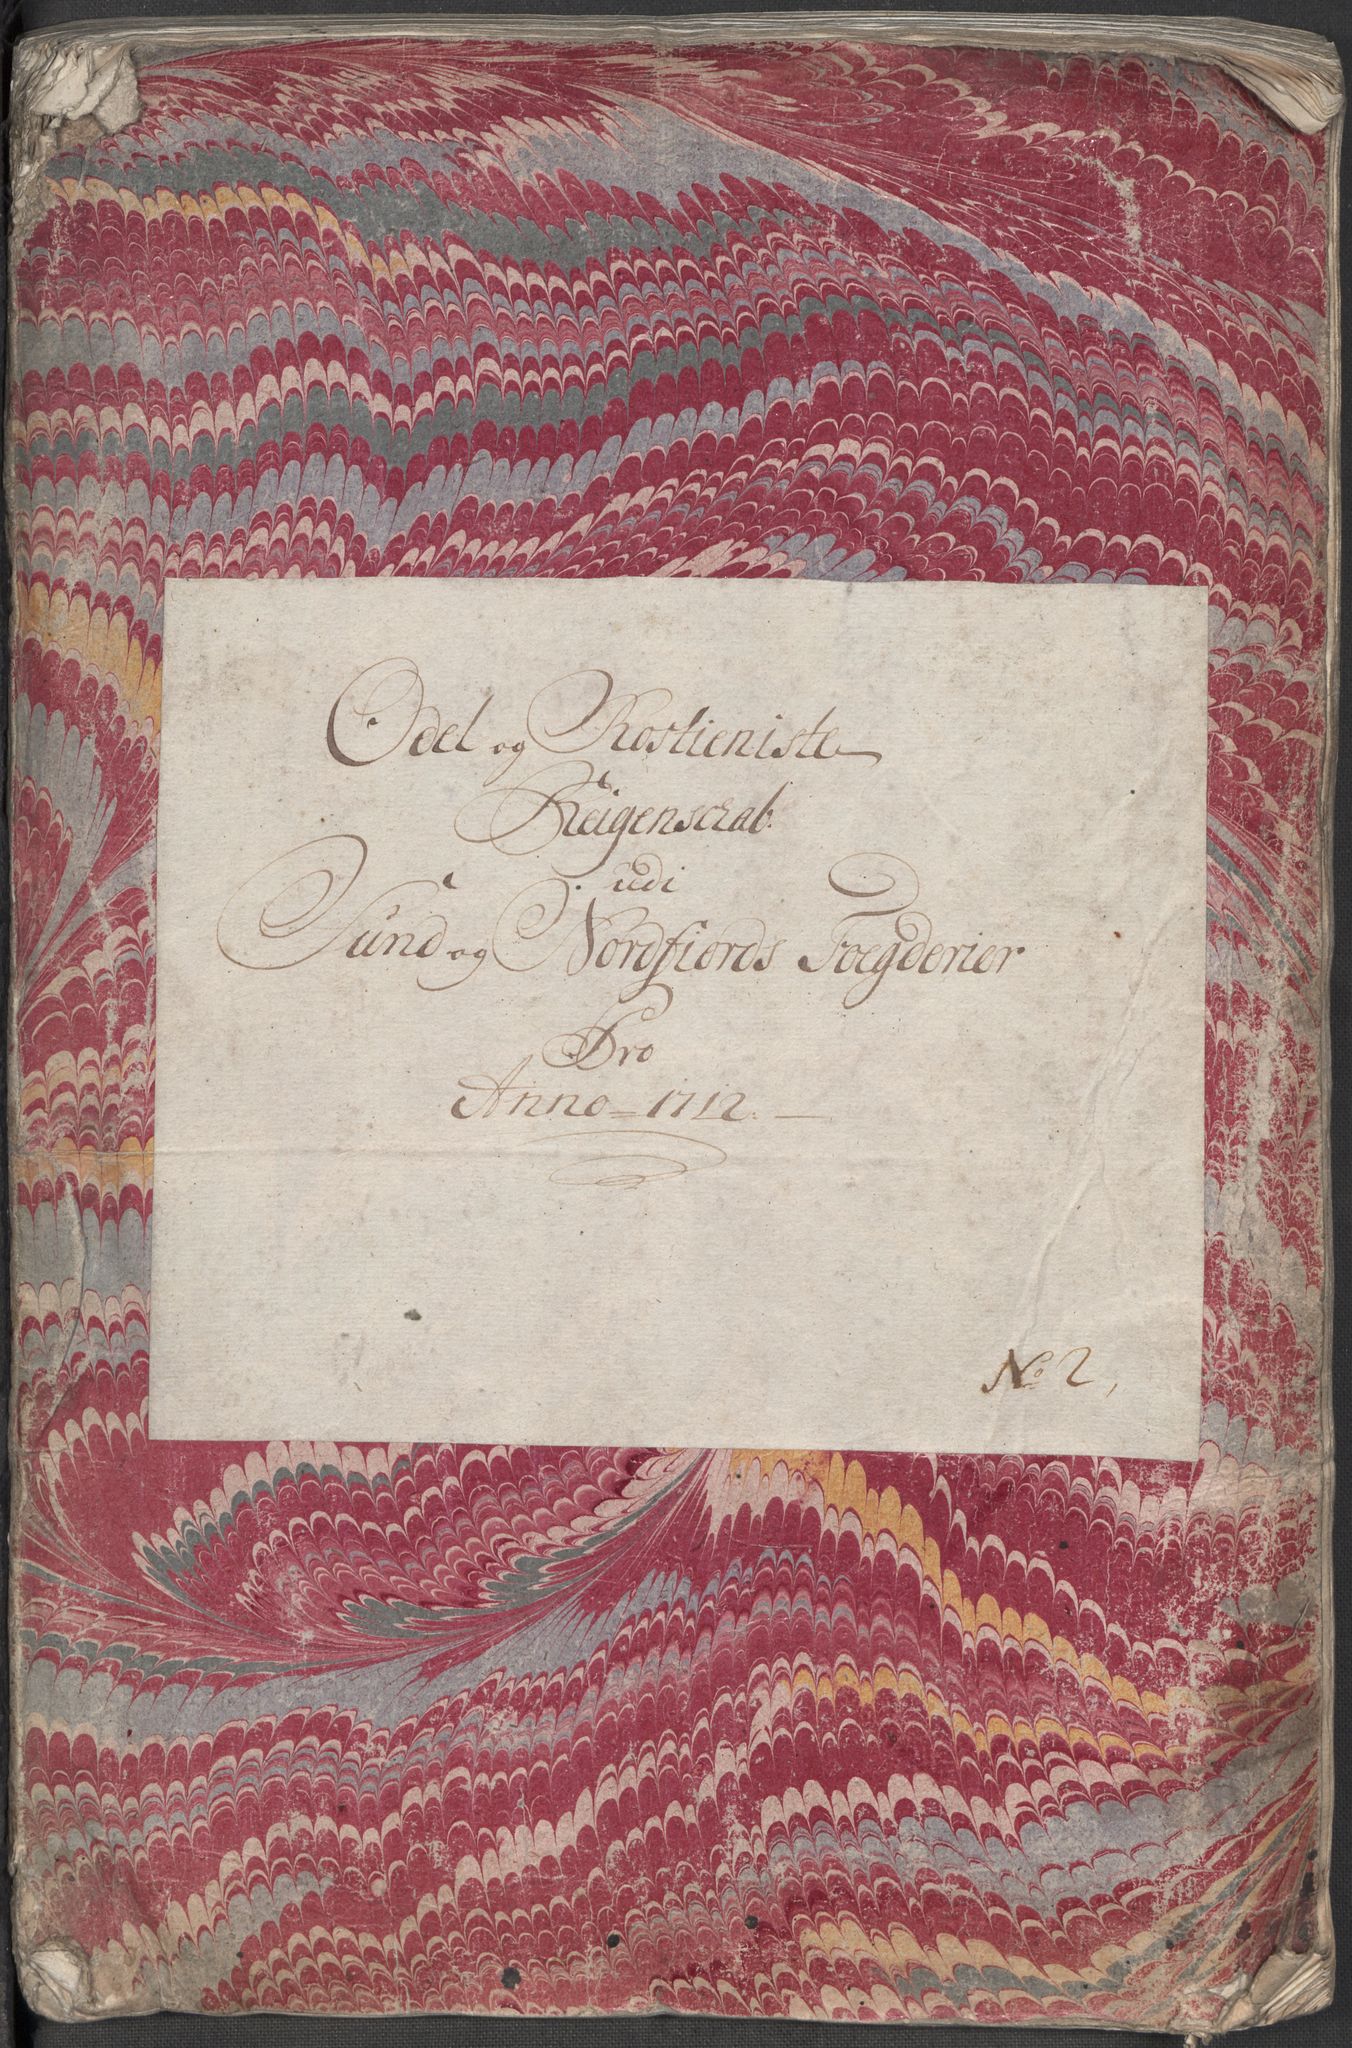 Odel og Rostieniste
Reigenscrab
udi
Sund og Nordfiords Foegderier
Pro
Anno 1712.
No 2,